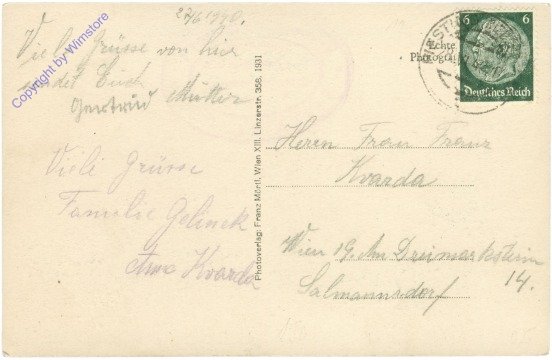 27/6 1940.
Viele Grüsse von hier
sendet Euch
Gertrud Mutter
Viele Grüsse
Familie Gelinek
Anna Kvarda
Photoverlag: Franz Mörtl, Wien XIII, Linzerstr. 358, 1931
6 6
Deutsches Reich
Echte
Photogr
Herrn Frau Franz
Kvarda
Wien 19. Am Dreimarkstein
Salmannsdorf 14.
Copyright by Wimstore